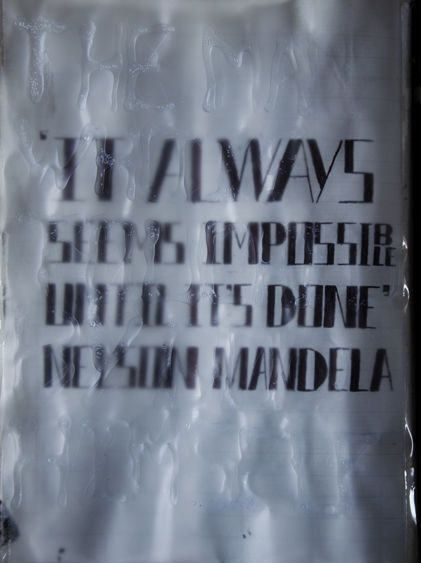 THE MAN
'IT ALWAYS
SEEMS IMPOSSIBLE
UNTIL IT'S DONE'
NELSON MANDELA